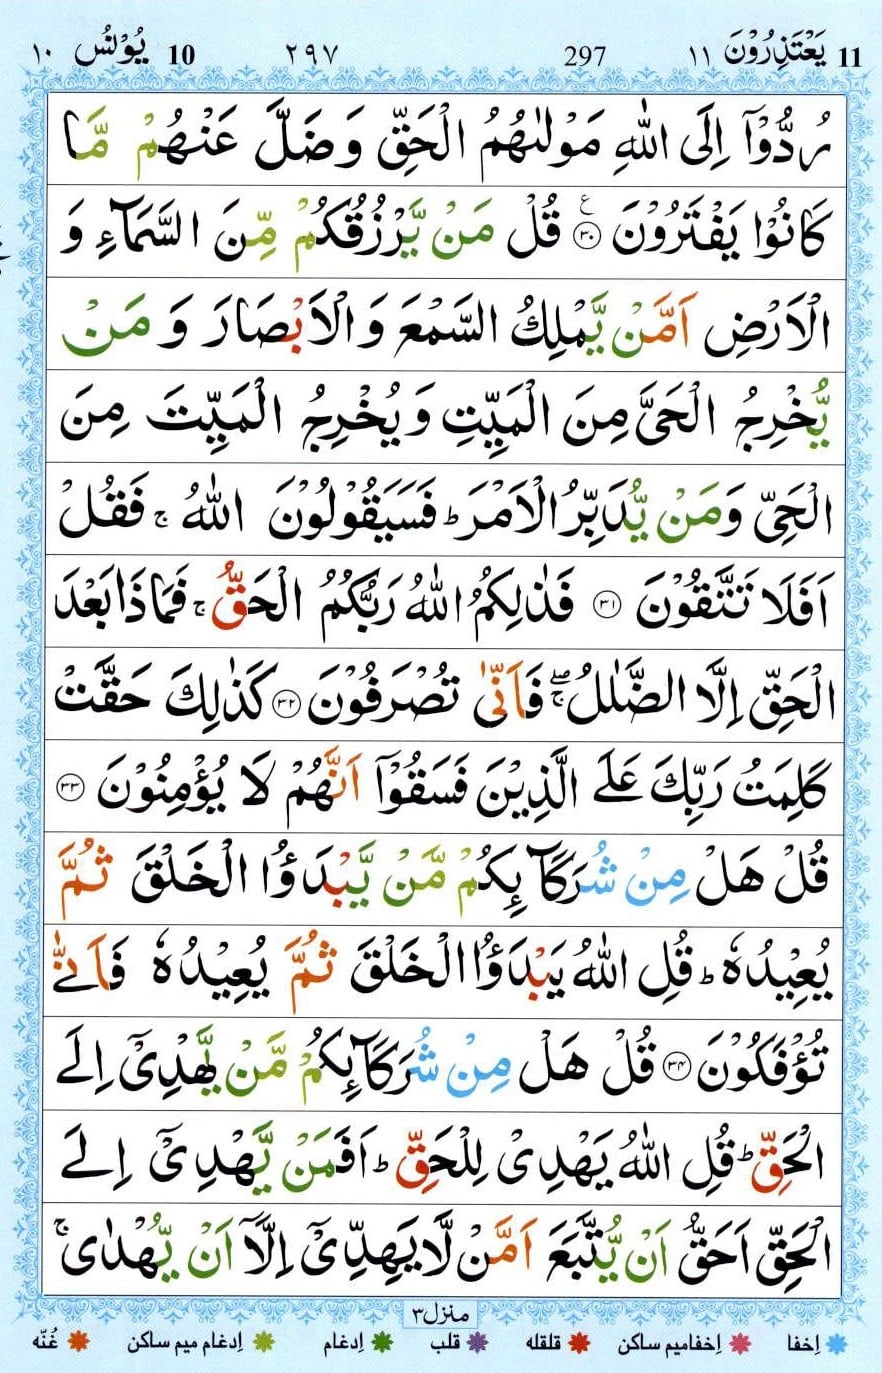 11 يَعْتَذِرُوْنَ ١١ 297 ٢٩٧ 10 يُوْنُسُ ١٠
رُدُّوْٓا اِلَى اللّٰهِ مَوْلٰىهُمُ الْحَقِّ وَضَلَّ عَنْهُمْ مَّا
كَانُوْا يَفْتَرُوْنَ ۧ۝۳۰ قُلْ مَنْ يَّرْزُقُكُمْ مِّنَ السَّمَآءِ وَ
الْاَرْضِ اَمَّنْ يَّمْلِكُ السَّمْعَ وَالْاَبْصَارَ وَ مَنْ
يُّخْرِجُ الْحَيَّ مِنَ الْمَيِّتِ وَيُخْرِجُ الْمَيِّتَ مِنَ
الْحَيِّ وَمَنْ يُّدَبِّرُ الْاَمْرَ ؕ فَسَيَقُوْلُوْنَ اللّٰهُ ۚ فَقُلْ
اَفَلَا تَتَّقُوْنَ ۝۳۱ فَذٰلِكُمُ اللّٰهُ رَبُّكُمُ الْحَقُّ ۚ فَمَاذَا بَعْدَ
الْحَقِّ اِلَّا الضَّلٰلُ ۖۚ فَاَنّٰى تُصْرَفُوْنَ ۝۳۲ كَذٰلِكَ حَقَّتْ
كَلِمَتُ رَبِّكَ عَلَى الَّذِيْنَ فَسَقُوْٓا اَنَّهُمْ لَا يُؤْمِنُوْنَ ۝۳۳
قُلْ هَلْ مِنْ شُرَكَآئِكُمْ مَّنْ يَّبْدَؤُا الْخَلْقَ ثُمَّ
يُعِيْدُهٗ ؕ قُلِ اللّٰهُ يَبْدَؤُا الْخَلْقَ ثُمَّ يُعِيْدُهٗ فَاَنّٰى
تُؤْفَكُوْنَ ۝۳۴ قُلْ هَلْ مِنْ شُرَكَآئِكُمْ مَّنْ يَّهْدِيْٓ اِلَى
الْحَقِّ ؕ قُلِ اللّٰهُ يَهْدِيْ لِلْحَقِّ ؕ اَفَمَنْ يَّهْدِيْٓ اِلَى
الْحَقِّ اَحَقُّ اَنْ يُّتَّبَعَ اَمَّنْ لَّا يَهِدِّيْٓ اِلَّآ اَنْ يُّهْدٰى ۚ
منزل ۳
اِخفا اِخفامیم ساکن قلقله قلب اِدغام اِدغام میم ساکن غُنّه